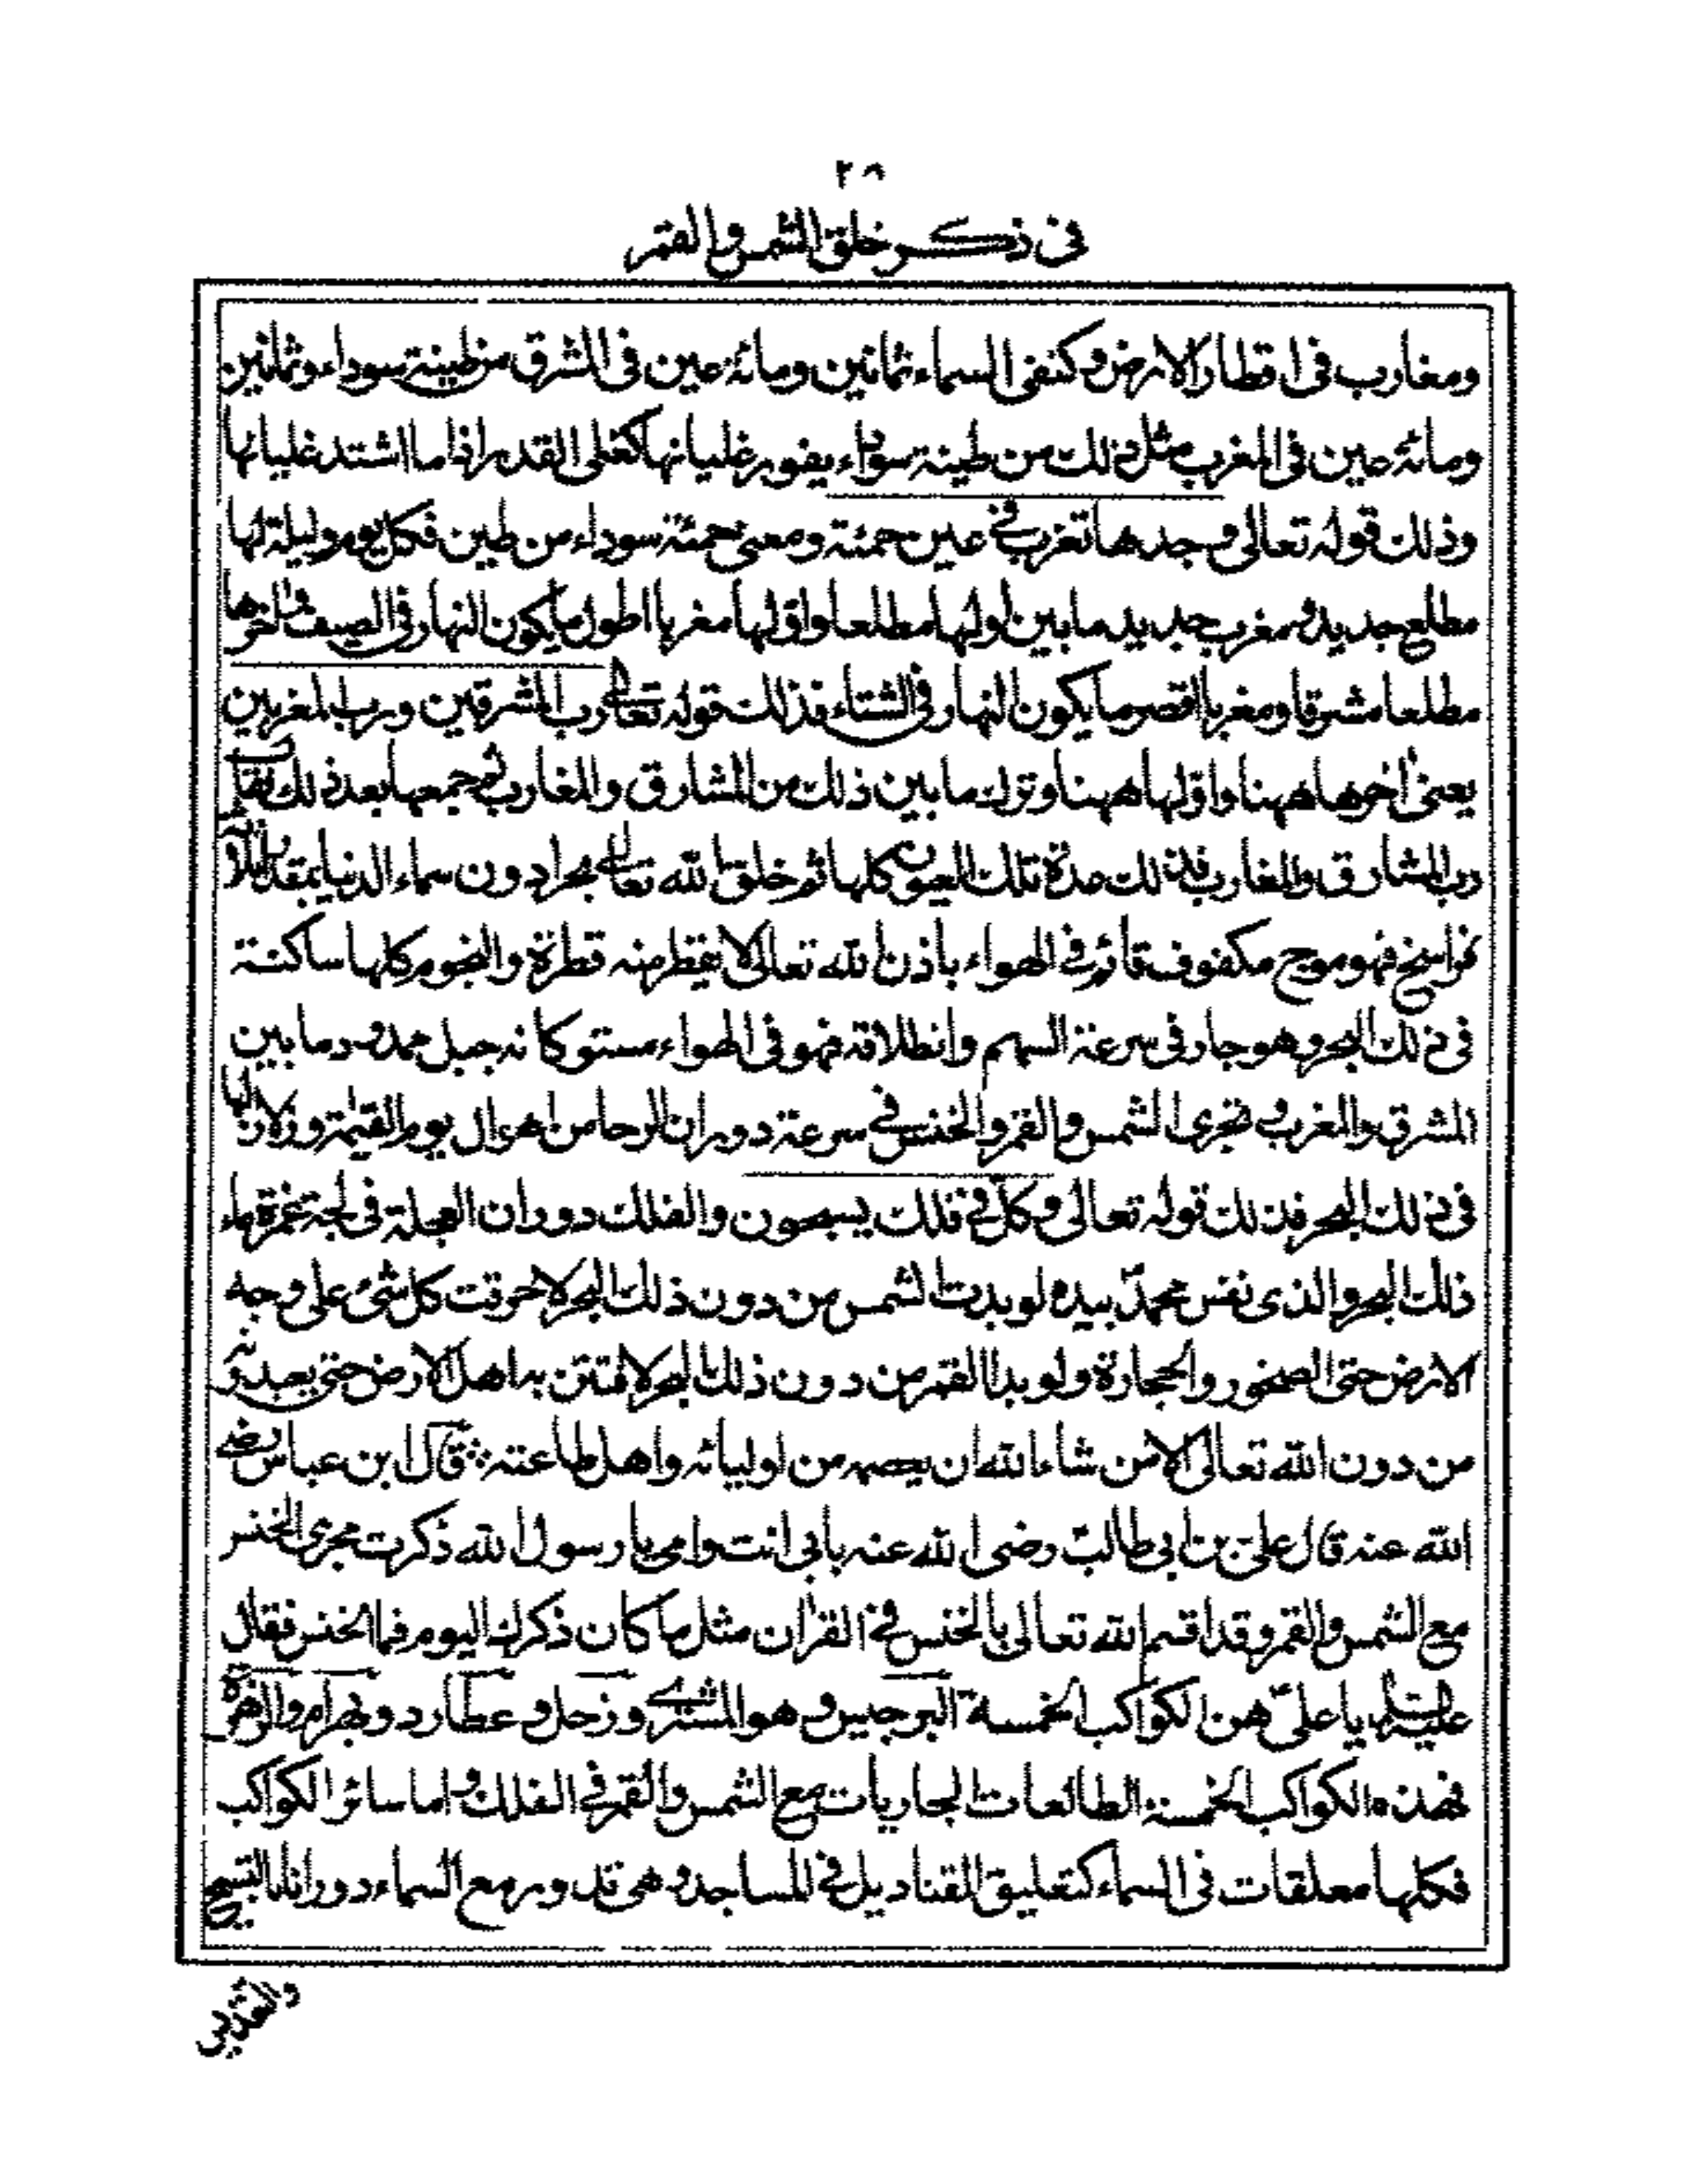 ٢٨
فى ذكر خلق الشمس والقمر
ومغارب فى اقطار الارض وكنفى السماء ثمانين ومائة عين فى المشرق من طينة سوداء وثمانين
ومائة عين فى المغرب مثل ذلك من طينة سوداء يفور غليانها كغلى القدر اذا ما اشتد غليانها
وذلك قوله تعالى وجدها تغرب فى عين حمئة ومعنى حمئة سوداء من طين فكل يوم وليلة لها
مطلع جديد ومغرب جديد ما بين اولها مطلعا واولها مغربا اطول ما يكون النهار فى الصيف واخرها
مطلعا مشرقا ومغربا اقصر ما يكون النهار فى الشتاء فذلك قوله تعالى رب المشرقين ورب المغربين
يعنى اخرها ههنا واولها ههنا وترك ما بين ذلك من المشارق والمغارب ثم جمعها بعد ذلك فقال
رب المشارق والمغارب فذلك عدة تلك العيون كلها ثم خلق الله تعالى بحرا دون سماء الدنيا بمقدار ثلاث
فراسخ فهو موج مكفوف قائم فى الهواء باذن الله تعالى لا يقطر منه قطرة والنجوم كلها ساكنة
فى ذلك البحر وهو جار فى سرعة السهم وانطلاقه فهو فى الهواء مستو كانه جبل ممدود ما بين
المشرق والمغرب فتجرى الشمس والقمر والخنس فى سرعة دوران الرحا من اهوال يوم القيمة وزلازلها
فى ذلك البحر فذلك قوله تعالى وكل فى فلك يسبحون والفلك دوران العجلة فى لجة غمرة ماء
ذلك البحر والذى نفس محمد بيده لو بدت الشمس من دون ذلك البحر لاحرقت كل شئ على وجه
الارض حتى الصخور والحجارة ولو بدا القمر من دون ذلك البحر لافتتن به اهل الارض حتى يعبدونه
من دون الله تعالى الا من شاء الله ان يعصمه من اوليائه واهل طاعته قال ابن عباس رضى
الله عنه قال على بن ابى طالب رضى الله عنه بابى انت وامى يا رسول الله ذكرت مجرى الخنس
مع الشمس والقمر وقد اقسم الله تعالى بالخنس فى القران مثل ما كان ذكرك اليوم فما الخنس فقال
عليه السلام يا على هن الكواكب الخمسة البرجيس وهو المشترى وزحل وعطارد وبهرام والزهرة
فهذه الكواكب الخمسة الطالعات الجاريات مع الشمس والقمر فى الفلك واما سائر الكواكب
فكلها معلقات فى السماء كتعليق القناديل فى المساجد وهى تدور مع السماء دورانا بالتسبيح
والتقديس